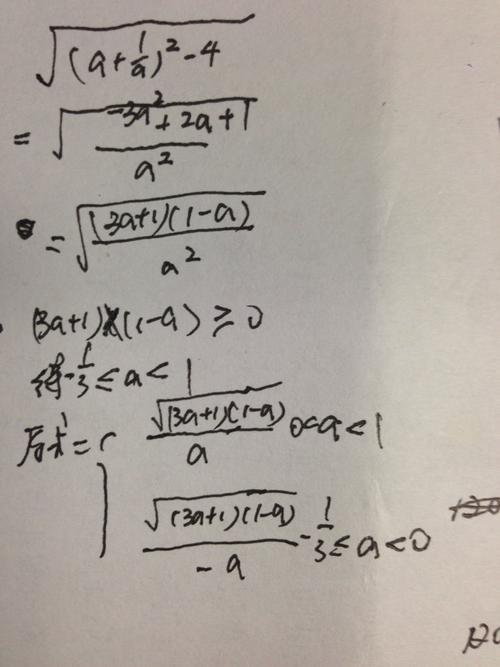 √((a+1/a)²-4)
= √((-3a²+2a+1)/a²)
= √(((3a+1)(1-a))/a²)
(3a+1)(1-a) ≥ 0
得 -1/3 ≤ a < 1
原式 = { √((3a+1)(1-a))/a 0<a<1
√((3a+1)(1-a))/-a -1/3 ≤ a < 0